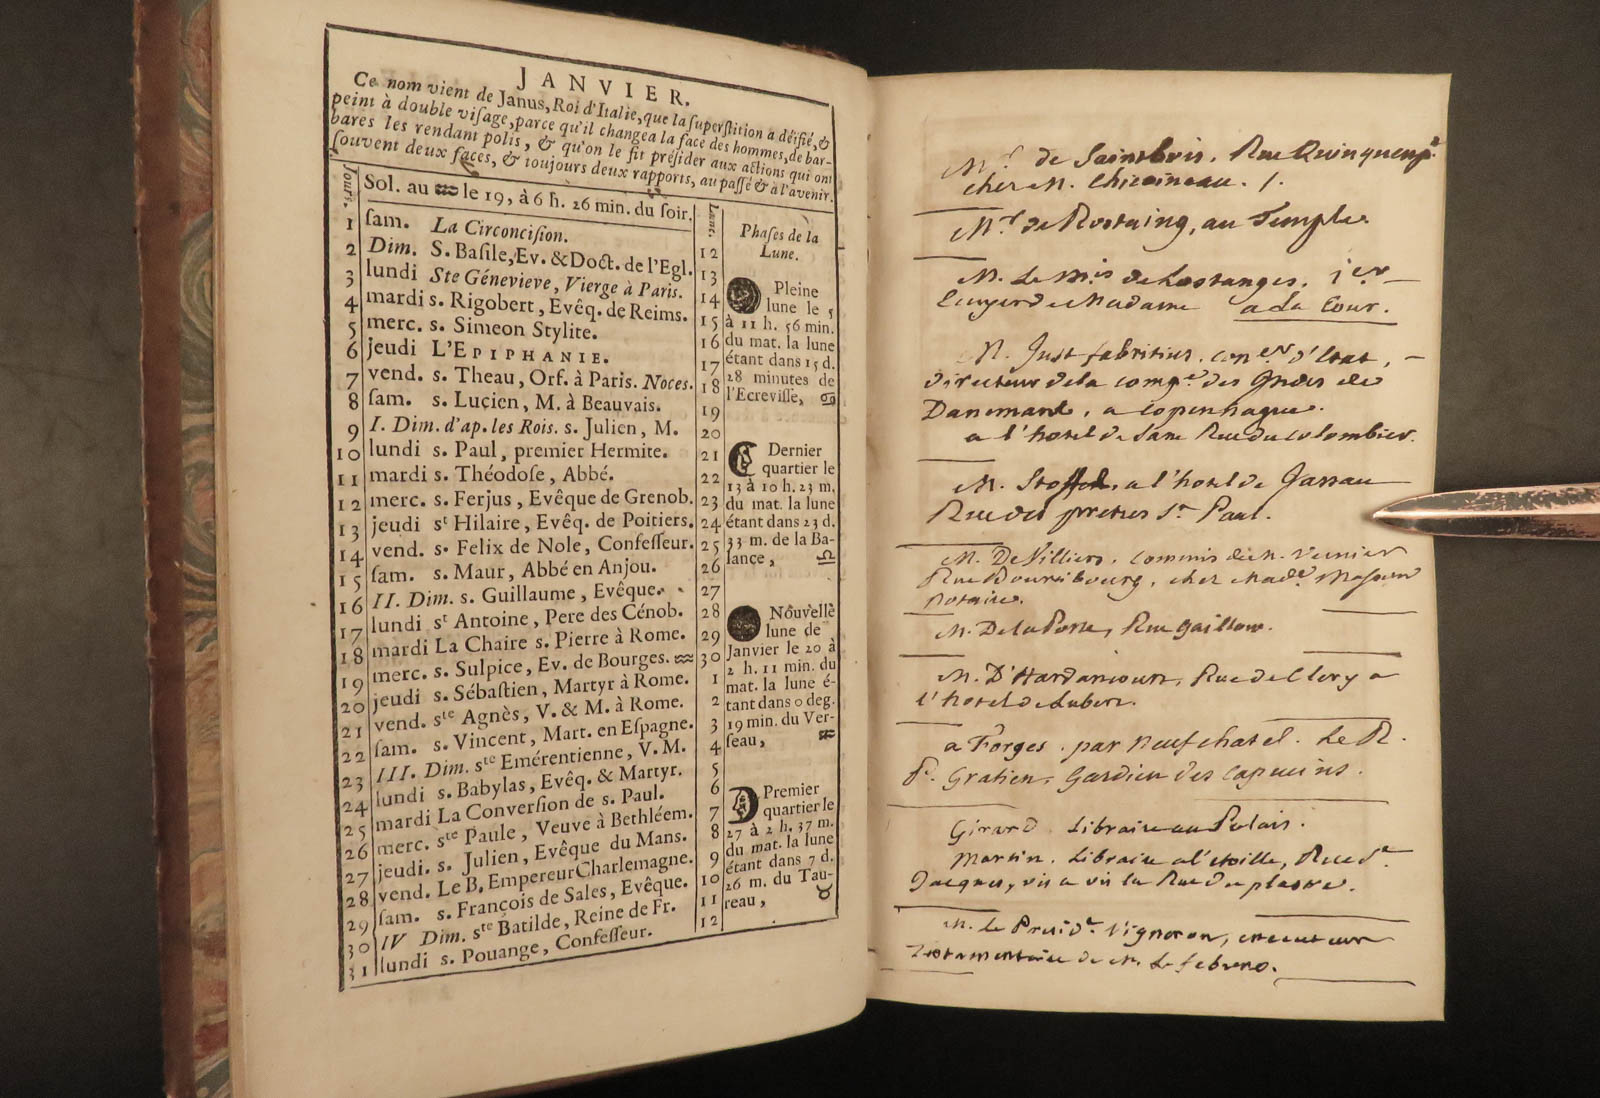 JANVIER.
Ce nom vient de Janus, Roi d'Italie, que la ſuperſtition a déifié, &
peint à double viſage, parce qu'il changea la face des hommes, de bar-
bares les rendant polis, & qu'on le fit préſider aux actions qui ont
ſouvent deux faces, & toujours deux rapports, au paſſé & à l'avenir.
Jours.
Sol. au ♒ le 19, à 6 h. 26 min. du ſoir.
1 ſam. La Circonciſion.
2 Dim. S. Baſile, Ev. & Doct. de l'Egl.
3 lundi Ste Génevieve, Vierge à Paris.
4 mardi s. Rigobert, Evêq. de Reims.
5 merc. s. Simeon Stylite.
6 jeudi L'EPIPHANIE.
7 vend. s. Theau, Orf. à Paris. Noces.
8 ſam. s. Lucien, M. à Beauvais.
9 I. Dim. d'ap. les Rois. s. Julien, M.
10 lundi s. Paul, premier Hermite.
11 mardi s. Théodoſe, Abbé.
12 merc. s. Ferjus, Evêque de Grenob.
13 jeudi st Hilaire, Evêq. de Poitiers.
14 vend. s. Felix de Nole, Confeſſeur.
15 ſam. s. Maur, Abbé en Anjou.
16 II. Dim. s. Guillaume, Evêque.
17 lundi st Antoine, Pere des Cénob.
18 mardi La Chaire s. Pierre à Rome.
19 merc. s. Sulpice, Ev. de Bourges. ♒
20 jeudi s. Sébaſtien, Martyr à Rome.
21 vend. ste Agnès, V. & M. à Rome.
22 ſam. s. Vincent, Mart. en Eſpagne.
23 III. Dim. ste Emérentienne, V. M.
24 lundi s. Babylas, Evêq. & Martyr.
25 mardi La Converſion de s. Paul.
26 merc. ste Paule, Veuve à Bethléem.
27 jeudi. s. Julien, Evêque du Mans.
28 vend. Le B. Empereur Charlemagne.
29 ſam. s. François de Sales, Evêque.
30 IV Dim. ste Batilde, Reine de Fr.
31 lundi s. Pouange, Confeſſeur.
Lune.
12
13
14
15
16
17
18
19
20
21
22
23
24
25
26
27
28
29
30
1
2
3
4
5
6
7
8
9
10
11
12
Phaſes de la
Lune.
Pleine
lune le 5
à 11 h. 56 min.
du mat. la lune
étant dans 15 d.
28 minutes de
l'Ecreviſſe, ♋
Dernier
quartier le
13 à 10 h. 23 m.
du mat. la lune
étant dans 23 d.
33 m. de la Ba-
lance, ♎
Nouvelle
lune de
Janvier le 20 à
2 h. 11 min. du
mat. la lune é-
tant dans 0 deg.
19 min. du Ver-
ſeau, ♒
Premier
quartier le
27 à 2 h. 37 m.
du mat. la lune
étant dans 7 d.
26 m. du Tau-
reau, ♉
Mr. de Rue
chez M.
Mr. de Rostaing, au Temple.
M. Le Mis de Lostanges, 1er
Ecuyer de Madame a La Cour.
M. Just fabritius, conser d'Etat,
directeur de la compe des Indes de
Danemark, a Copenhague.
a l'hotel de Rue du Colombier.
M. a l'hotel de
Rue des pretres St Paul.
M. De Villiers, commis de M.
Rue chez Made
Notaire.
M. De la Porte, Rue Gaillon.
M. D'Hardancourt, Rue de Clery a
l'hotel de Lubert.
a Forges par Neufchatel. Le R.
Pe. Gratien, Gardien des capucins.
Girard Libraire au Palais.
Martin. Libraire a l'etoille, Rue St
Jacques, vis a vis la Rue du plastre.
M. le Presidt Vigneron, executeur
Testamentaire de M.